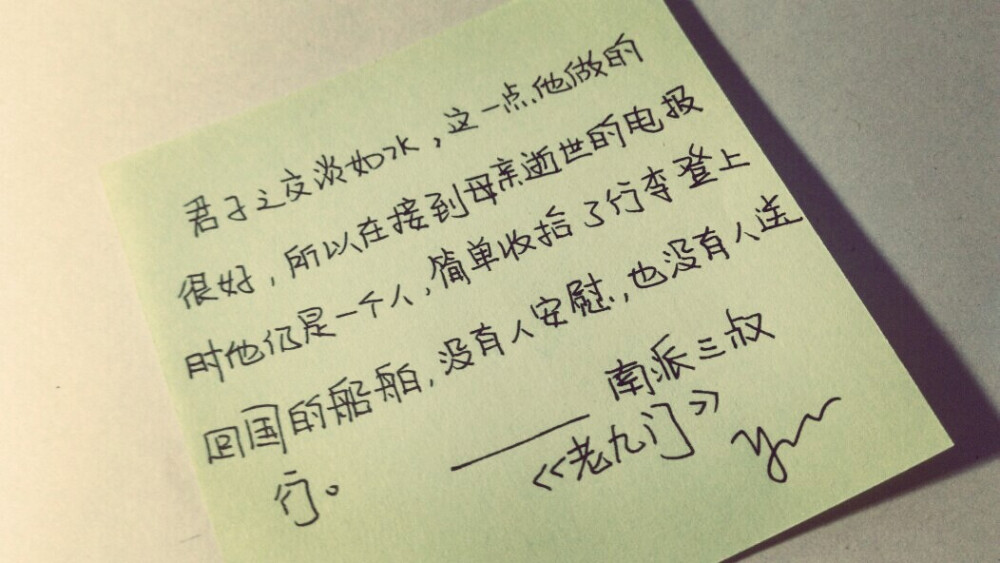 君子之交淡如水，这一点他做的
很好，所以在接到母亲逝世的电报
时他仍是一个人，简单收拾了行李登上
回国的船舶，没有人安慰，也没有人送
行。
——南派三叔
《老九门》